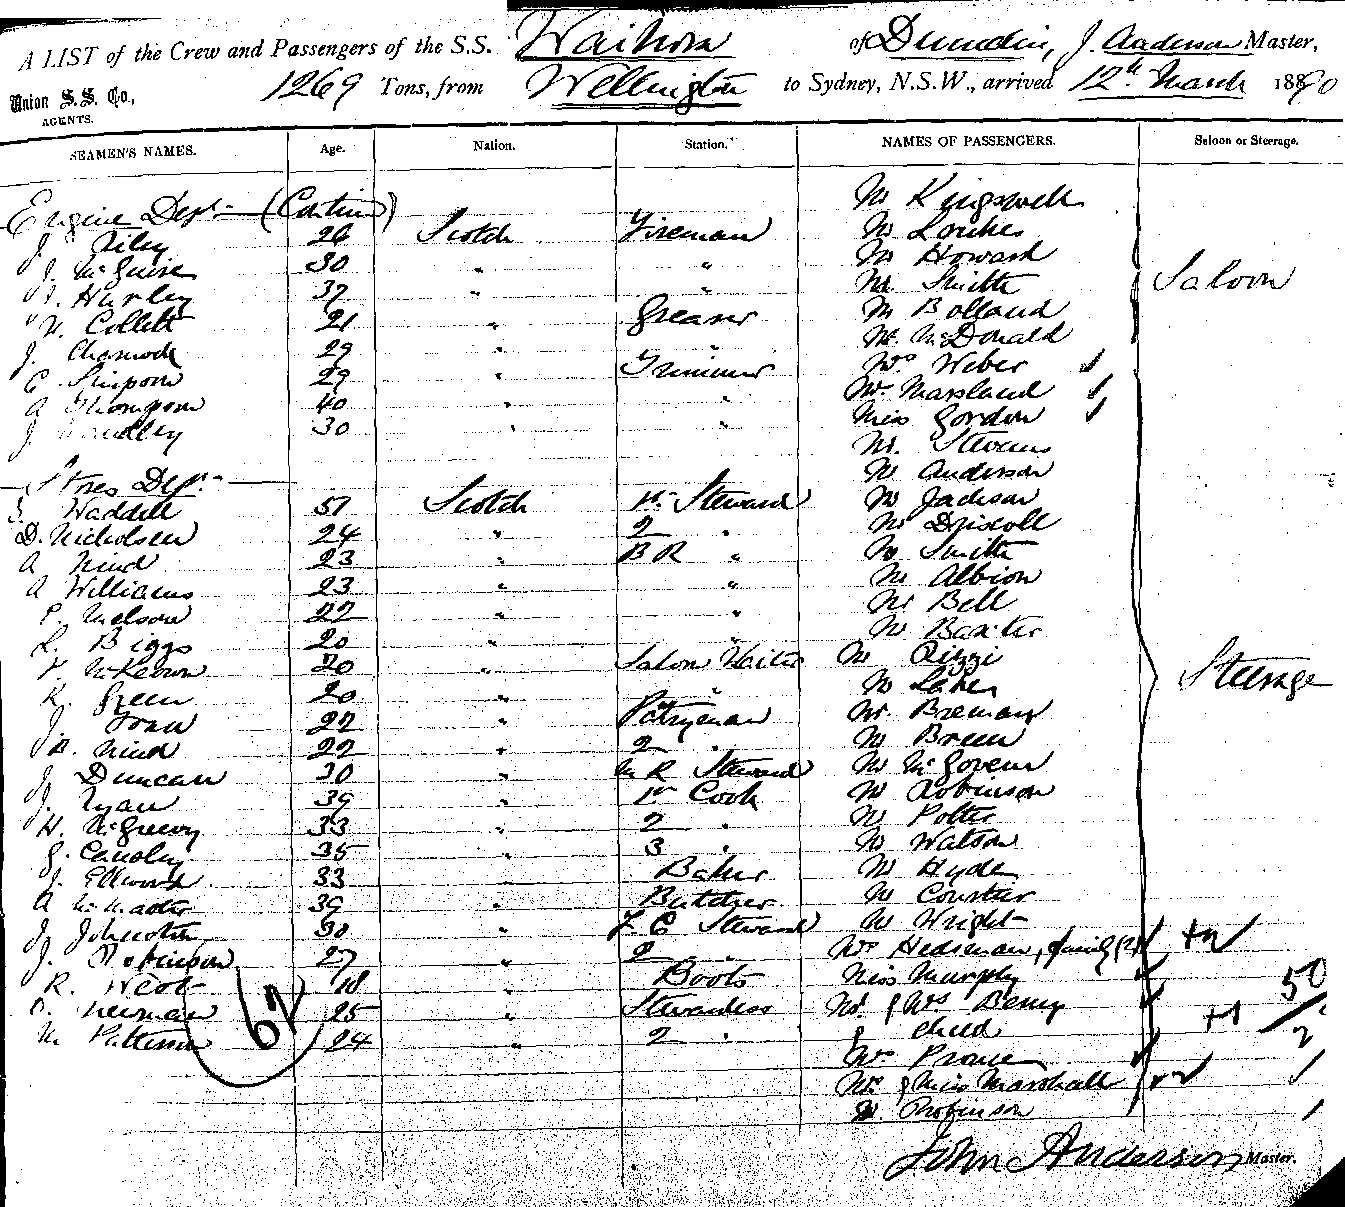 A LIST of the Crew and Passengers of the S.S. Waihora of Dunedin, J. Anderson Master,
1269 Tons, from Wellington to Sydney, N.S.W., arrived 12th March 1890
Union S.S. Co.,
AGENTS.
SEAMEN'S NAMES. Age. Nation. Station. NAMES OF PASSENGERS. Saloon or Steerage.
Mr Kingswell
Engine Dept (Contin)
J. Riley 26 Scotch Fireman Mr
J. McGuire 30 " " Mr Howard
Hurley 37 " " Mr Smith Saloon
Collett 21 " Greaser Mr Bolland
J. 29 " " Mr McDonald
Simpson 29 " Trimmer Mrs Weber
A Thompson 40 " " Mr Marsland
J 30 " " Miss Gordon
Mr. Stevens
Stores Dept Mr Anderson
Waddell 51 Scotch 1st Steward Mr Jackson
D. Nicholson 24 " 2 " Mr Driscoll
A Nind 23 " B R " Mr Smith
A Williams 23 " " Mr Albion
22 " " Mr Bell
L. Biggs 20 " " Mr Baxter
McKeown 20 " Saloon Waiter Mr Rizzi
R. Green 20 " " Mr
J. 22 " Pantryman Mr. Brennan
Nind 22 " 2 " Mr Breen
J. Duncan 30 " M R Steward Mr McGovern
J. Ryan 39 " 1st Cook Mr Robinson
H. McGreevy 33 " 2 " Mr Potter
35 " 3 " Mr Watson
J. Ellwood 33 " Baker Mr Hyde
A McMaster 39 " Butcher Mr
J Johnston 30 " F. C Steward Mr Wright
J. Robinson 27 " 2 " Mrs family (2) +2
R. West 18 Boots Miss Murphy
Newman 25 " Stewardess Mr & Mrs Benny
M. Patterson 24 " 2 " & child +1
62
50/2
Mrs
Mr & Miss Marshall
Robinson
Steerage
John Anderson Master.